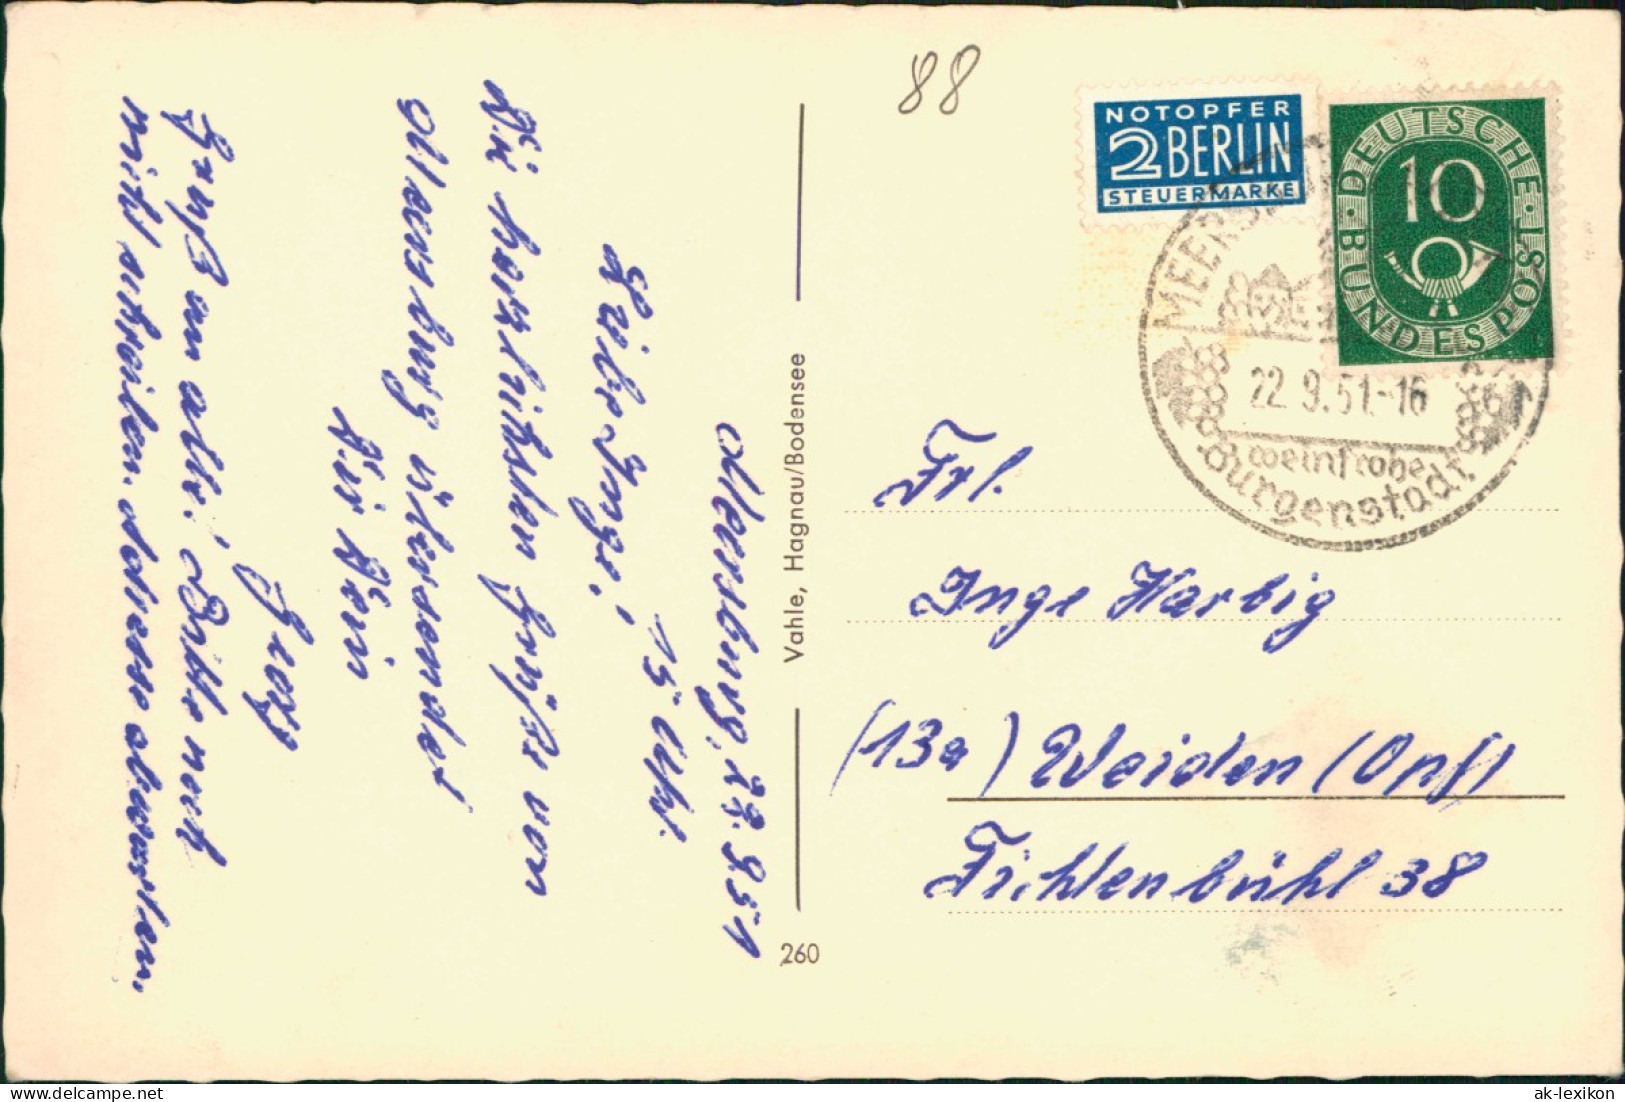 88
NOTOPFER
2 BERLIN
STEUERMARKE
DEUTSCHE BUNDESPOST
10
MEERS
22.9.51.-16
weinfrohe
Burgenstadt
Meersburg, 22.9.51
15 Uhr.
Liebe Inge!
Die herzlichsten Grüße von
Meersburg übersendet
Dir Dein
Georg
Gruß an alle! Bitte noch
nicht schreiben. Adresse abwarten.
Vahle, Hagnau/Bodensee
260
Frl.
Inge Harbig
(13a) Weiden (Opf)
Fichtenbühl 38
hippostcard.com
ak-lexikon